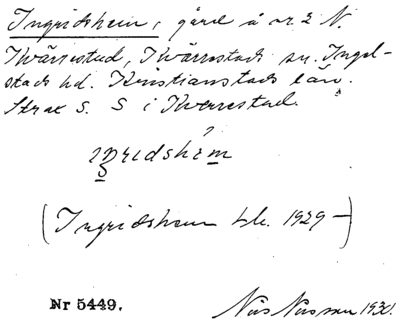 Ingridshem, gård å nr 2 N.
Kvärrestad, Kvärrestads sn. Ingel-
stads hd. Kristianstads län.
Strax S. S i Kverrestad.
iŋridshem
(Ingridshem tlk. 1929 –)
Nr 5449. Nils Nilsson 1930.